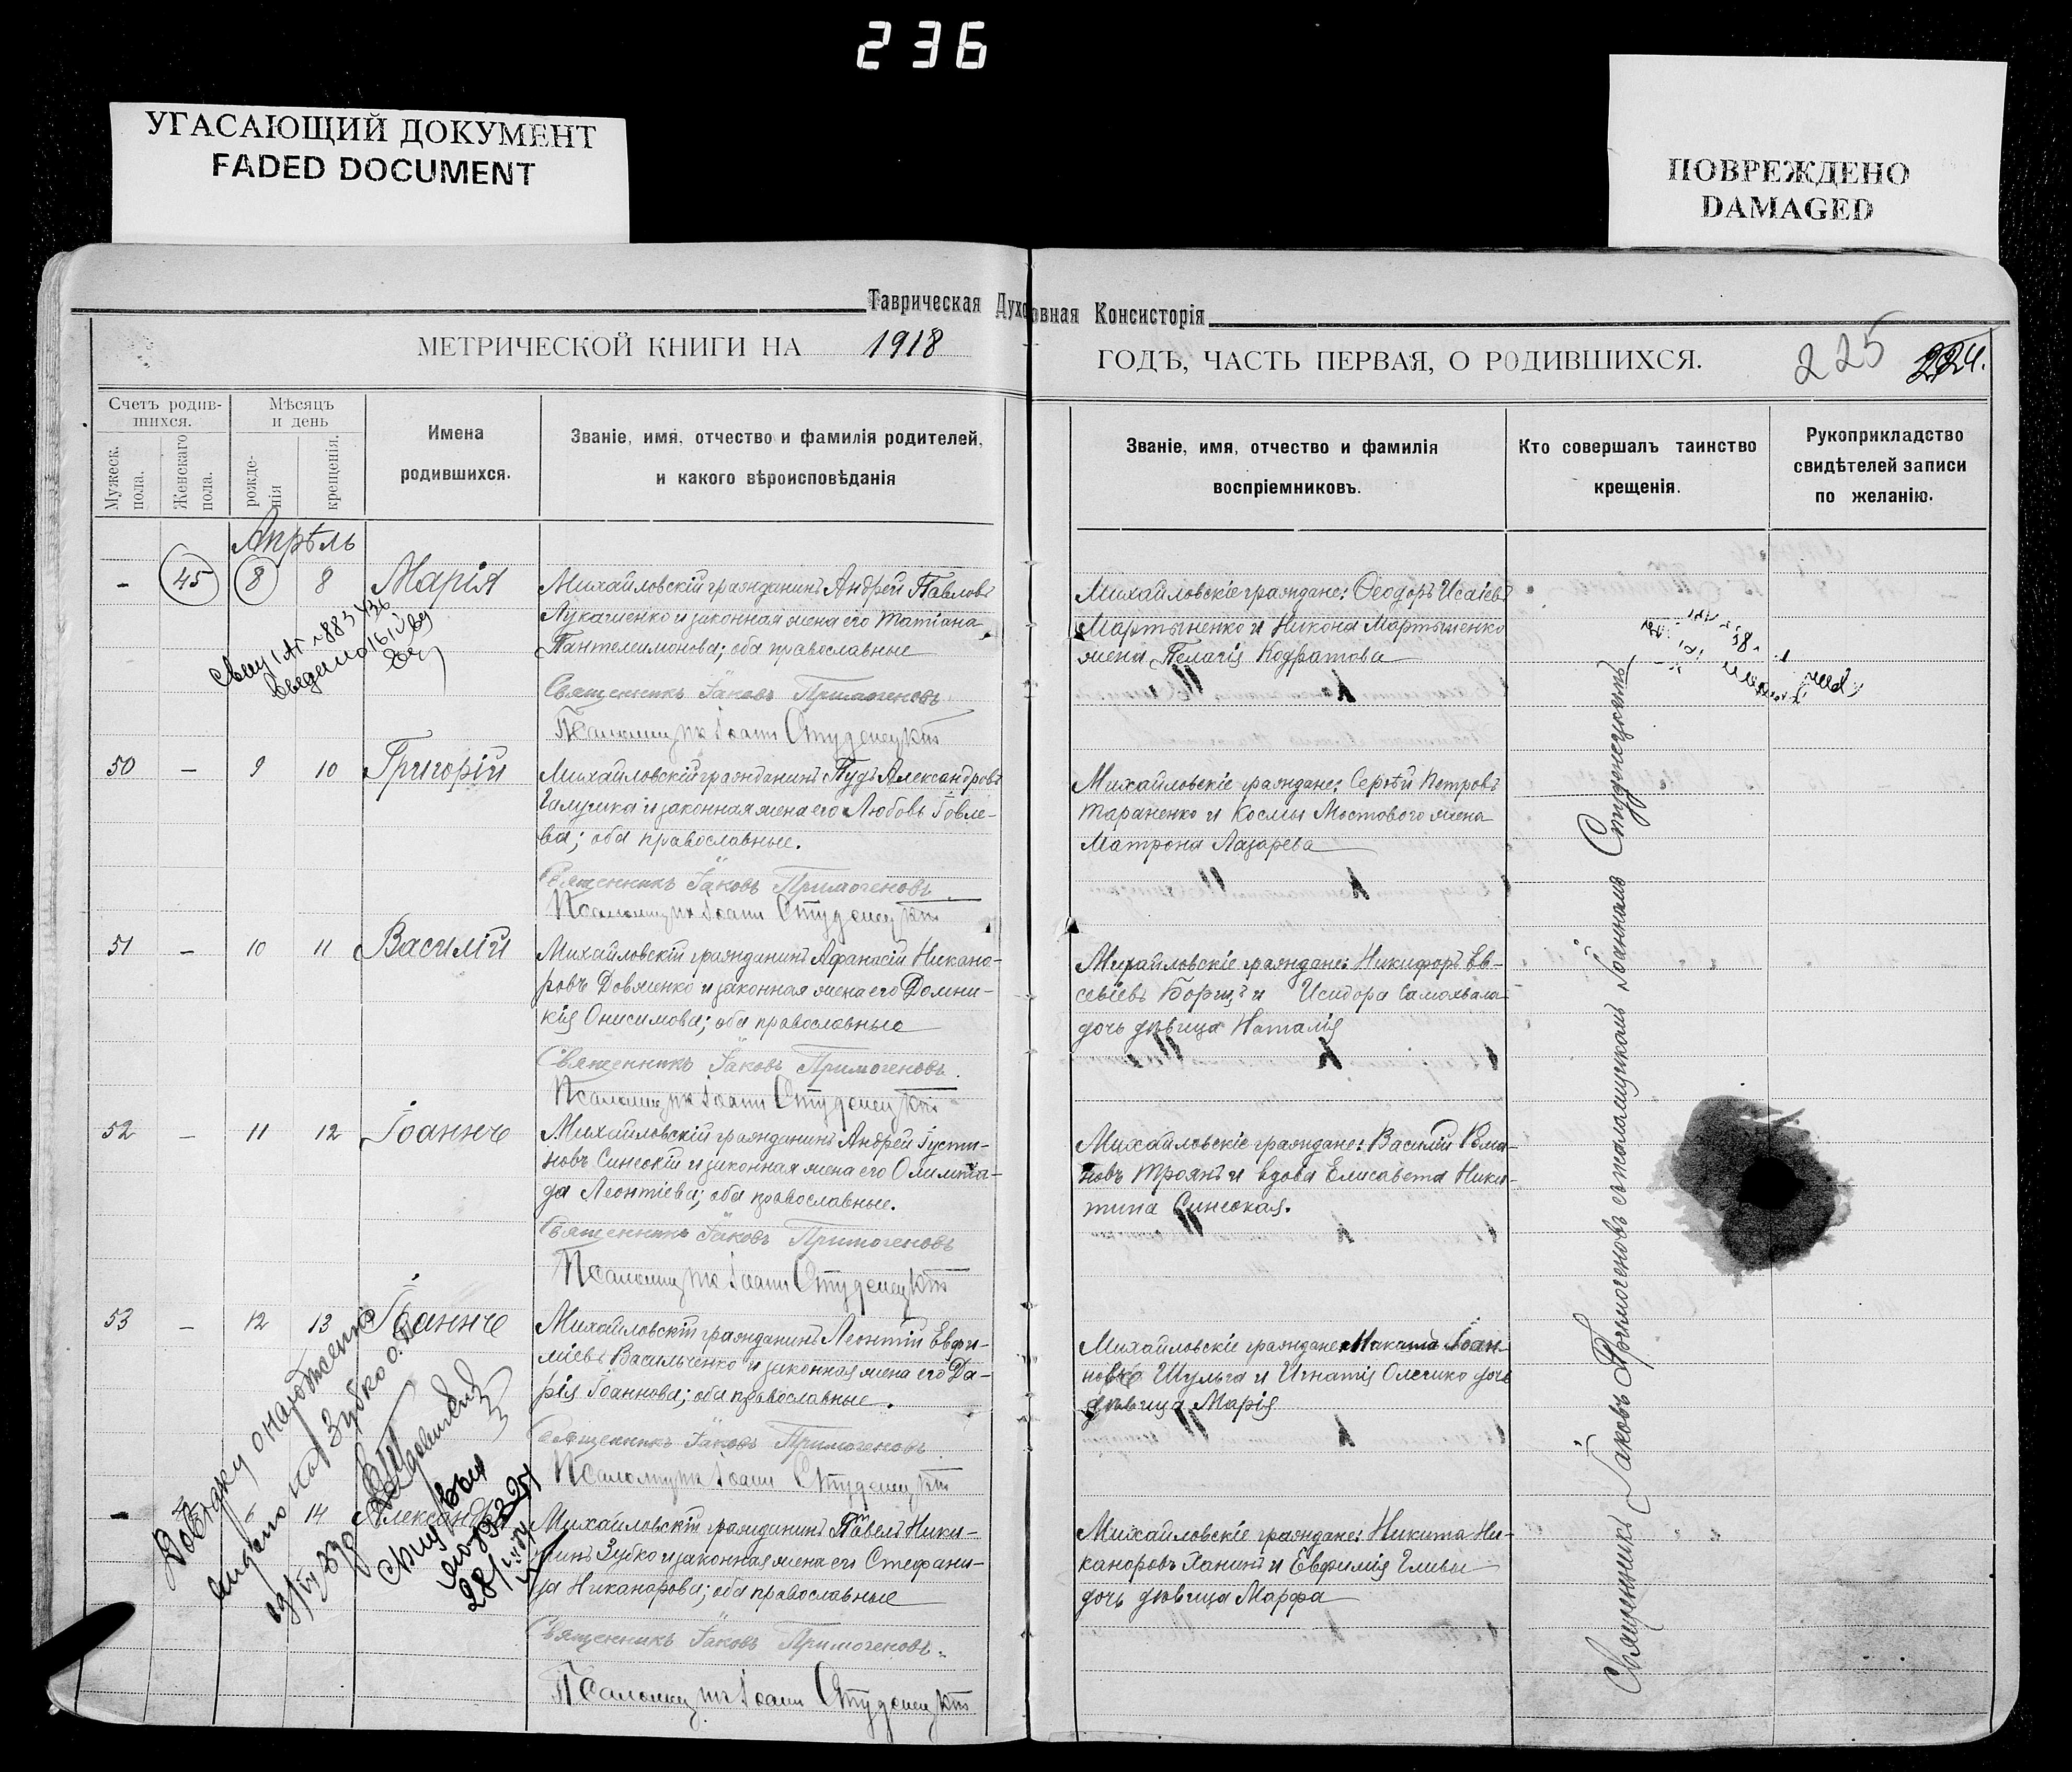 236
УГАСАЮЩИЙ ДОКУМЕНТ
FADED DOCUMENT
ПОВРЕЖДЕНО
DAMAGED
Таврическая Духовная Консисторія
МЕТРИЧЕСКОЙ КНИГИ НА 1918
ГОДЪ, ЧАСТЬ ПЕРВАЯ, О РОДИВШИХСЯ.
225
224.
Счетъ родив-
шихся.
Мужеск.
пола.
Женскаго
пола.
Мѣсяцъ
и день
рожде-
нія
крещенія.
Имена
родившихся.
Званіе, имя, отчество и фамилія родителей,
и какого вѣроисповѣданія
Званіе, имя, отчество и фамилія
воспріемниковъ.
Кто совершалъ таинство
крещенія.
Рукоприкладство
свидѣтелей записи
по желанію.
Апрѣль
- 45 8 8 Марія
Михайловскій гражданинъ Андрей Павловъ
Лукашенко и законная жена его Татіана
Пантелимонова; оба православные
Священникъ Іаковъ Примогеновъ
Псаломщикъ Іоаннъ Студенецкій
Михайловскіе граждане: Ѳеодоръ Исаіевъ
Мартыненко и Никона Мартыненко
жена Пелагія Кодратова
50 - 9 10 Григорій
Михайловскій гражданинъ Пудъ Александровъ
Галушка и законная жена его Любовь Іовле-
ва; оба православные.
Священникъ Іаковъ Примогеновъ
Псаломщикъ Іоаннъ Студенецкій
Михайловскіе граждане: Сергѣй Петровъ
Тараненко и Космы Мостового жена
Матрона Лазарева
51 - 10 11 Василій
Михайловскій гражданинъ Афанасій Никано-
ровъ Довженко и законная жена его Домни-
кія Онисимова; оба православные
Священникъ Іаковъ Примогеновъ
Псаломщикъ Іоаннъ Студенецкій
Михайловскіе граждане: Никифоръ Ев-
севіевъ Борщъ и Исидора Самохвала
дочь дѣвица Наталія
52 - 11 12 Іоаннъ
Михайловскій гражданинъ Андрей Іусти-
новъ Синескій и законная жена его Олимпіа-
да Леонтіева; оба православные.
Священникъ Іаковъ Примогеновъ
Псаломщикъ Іоаннъ Студенецкій
Михайловскіе граждане: Василій Рома-
новъ Троянъ и вдова Елисавета Ники-
тина Синеская.
53 - 12 13 Іоаннъ
Михайловскій гражданинъ Леонтій Евфи-
міевъ Васильченко и законная жена его Да-
рія Іоаннова; оба православные.
Священникъ Іаковъ Примогеновъ
Псаломщикъ Іоаннъ Студенецкій
Михайловскіе граждане: Никита Іоан-
новъ Шульга и Игнатія Олешко дочь
дѣвица Марія
- 14 Александра
Михайловскій гражданинъ Павелъ Ники-
тинъ Зубко и законная жена его Стефани-
да Никанорова; оба православные
Священникъ Іаковъ Примогеновъ.
Псаломщикъ Іоаннъ Студенецкій
Михайловскіе граждане: Никита Ни-
каноровъ Ханинъ и Евфимія Гливы
дочь дѣвица Марфа
Священникъ Іаковъ Примогеновъ съ псаломщикомъ Іоанномъ Студенецкимъ